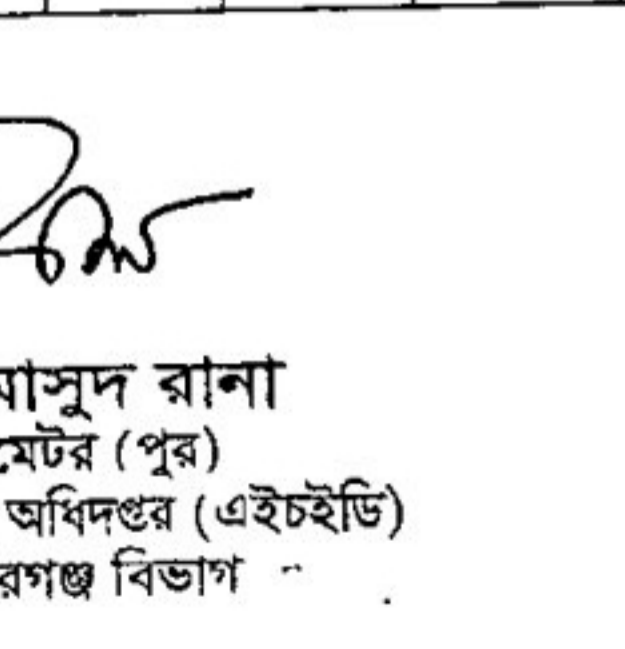 মাসুদ রানা
মেটর (পুর)
অধিদপ্তর (এইচইডি)
রগঞ্জ বিভাগ